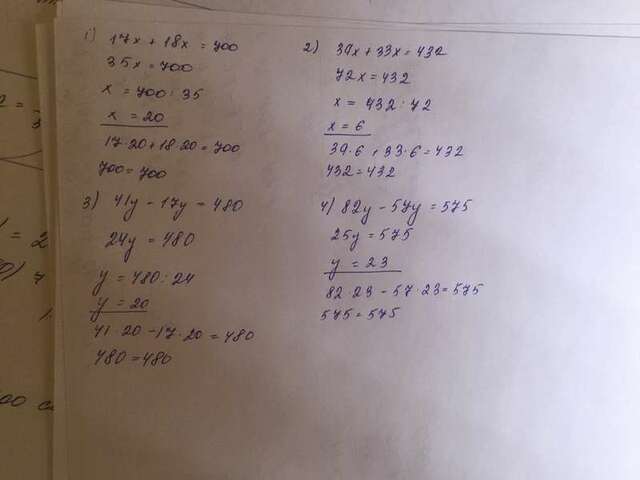 1) 17x + 18x = 700
35x = 700
x = 700 : 35
x = 20
17·20 + 18·20 = 700
700 = 700
2) 39x + 33x = 432
72x = 432
x = 432 : 72
x = 6
39·6 + 33·6 = 432
432 = 432
3) 41y - 17y = 480
24y = 480
y = 480 : 24
y = 20
41·20 - 17·20 = 480
480 = 480
4) 82y - 57y = 575
25y = 575
y = 23
82·23 - 57·23 = 575
575 = 575